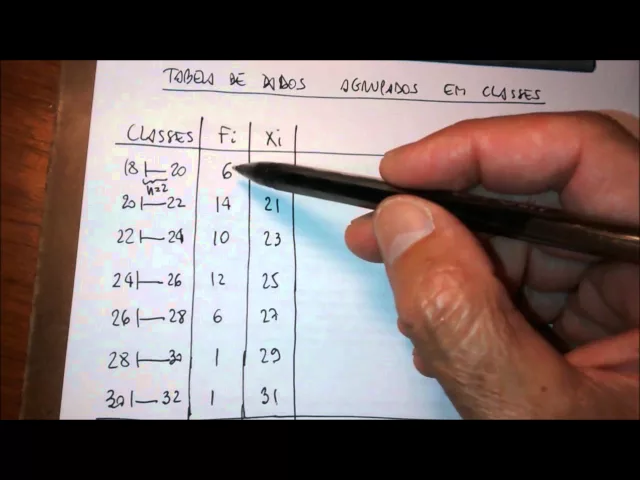 TABELA DE DADOS AGRUPADOS EM CLASSES
CLASSES Fi Xi
18 |— 20 6
h=2
20 |— 22 14 21
22 |— 24 10 23
24 |— 26 12 25
26 |— 28 6 27
28 |— 30 1 29
30 |— 32 1 31